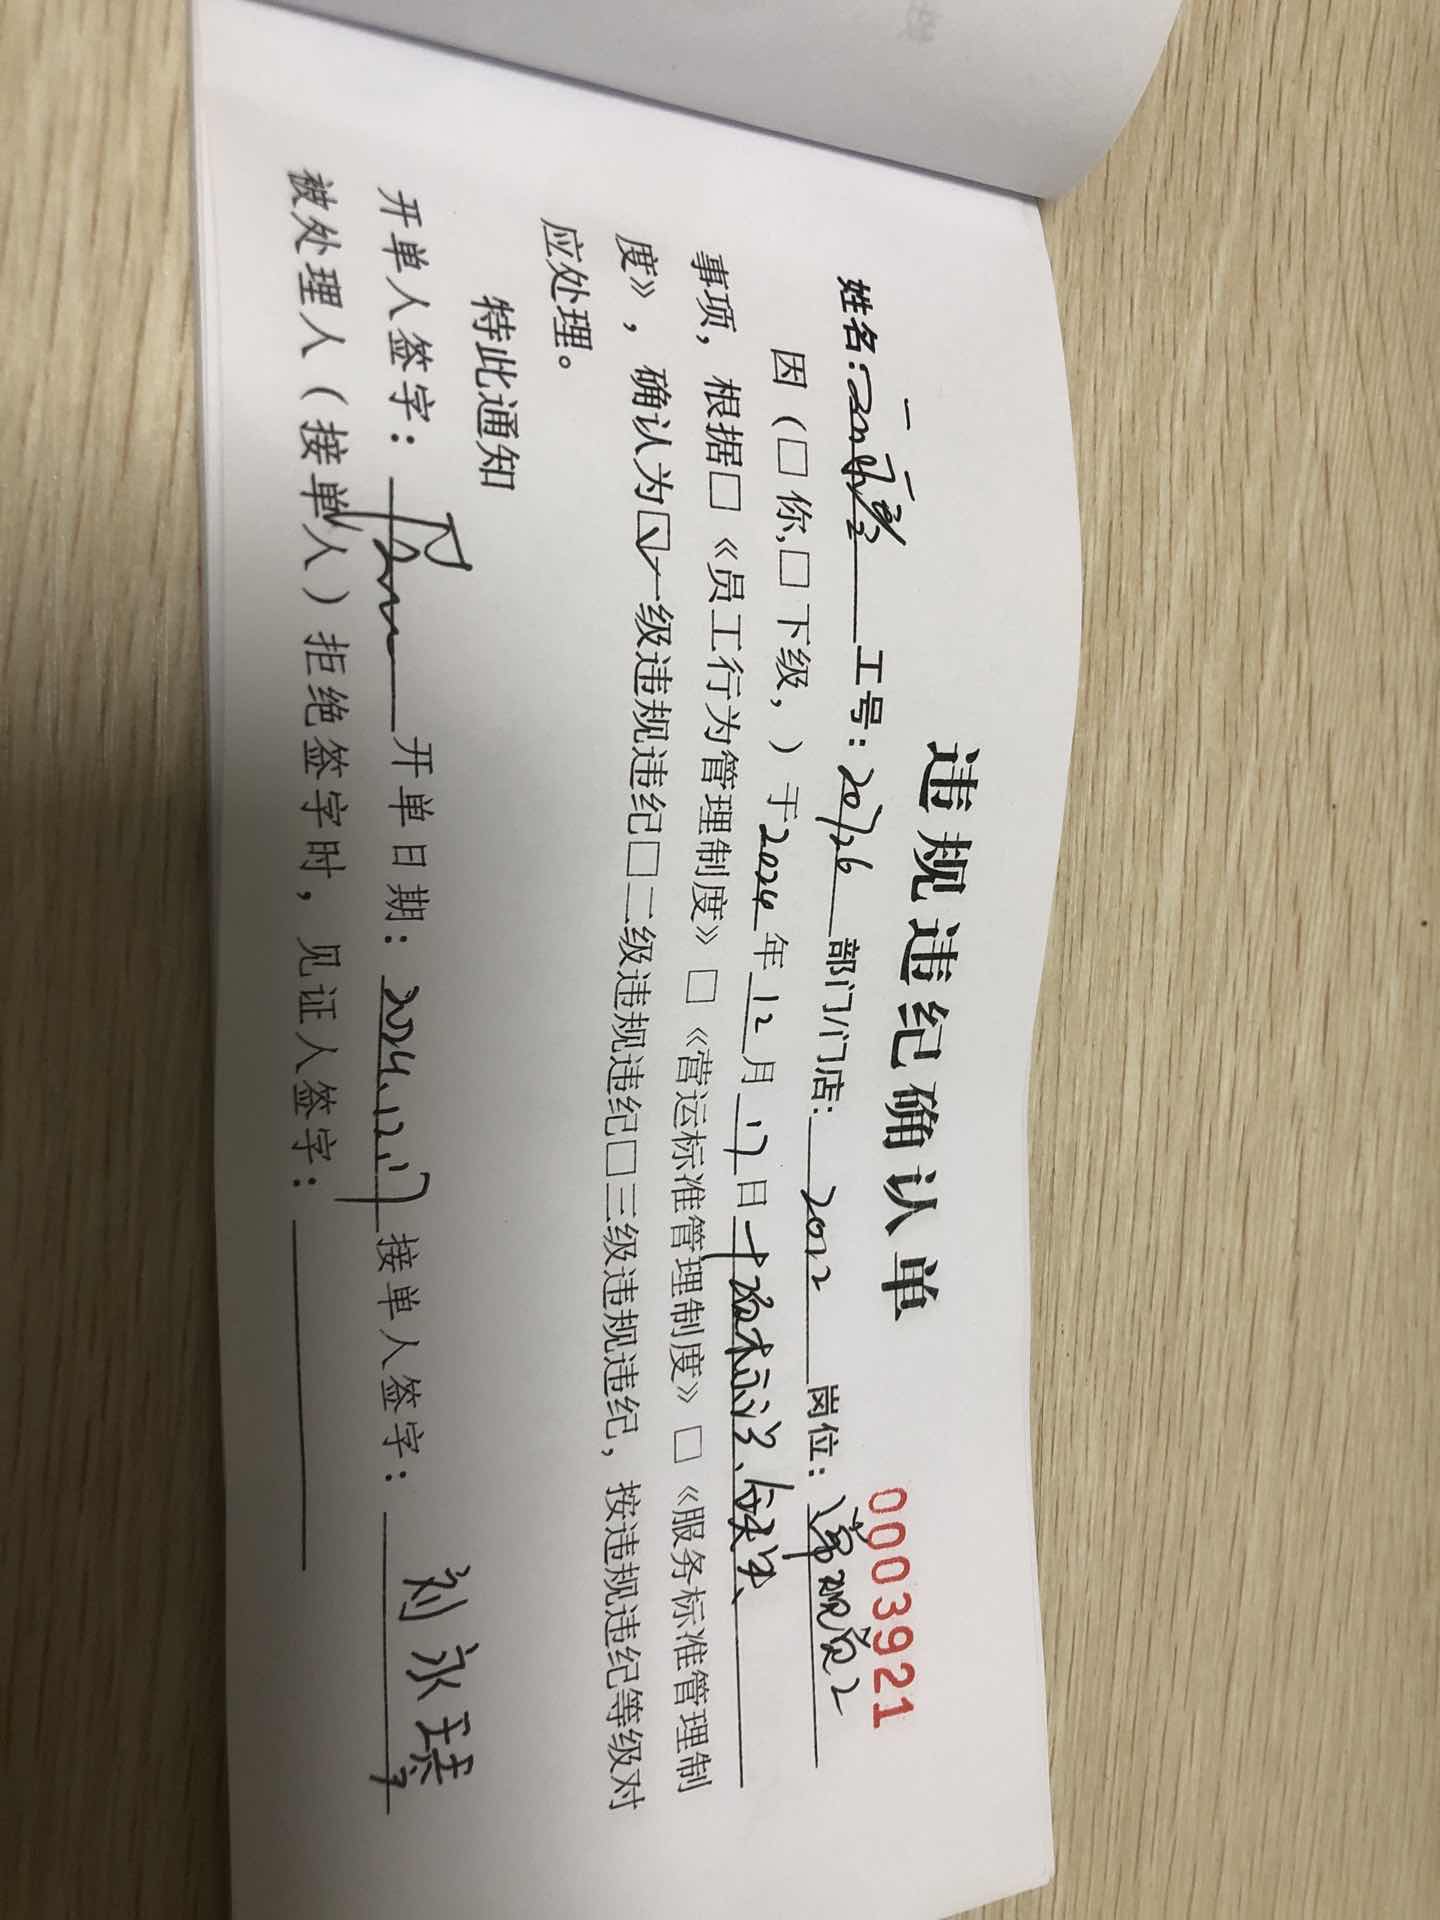 违规违纪确认单
0003921
姓名: 工号: 20726 部门/门店: 2022 岗位:
因(□你,□下级,)于2024年12月17日
事项, 根据□《员工行为管理制度》□《营运标准管理制度》□《服务标准管理制
度》, 确认为☑一级违规违纪□二级违规违纪□三级违规违纪, 按违规违纪等级对
应处理。
特此通知
开单人签字: 开单日期: 2024.12.17 接单人签字: 刘永
被处理人(接单人)拒绝签字时, 见证人签字: